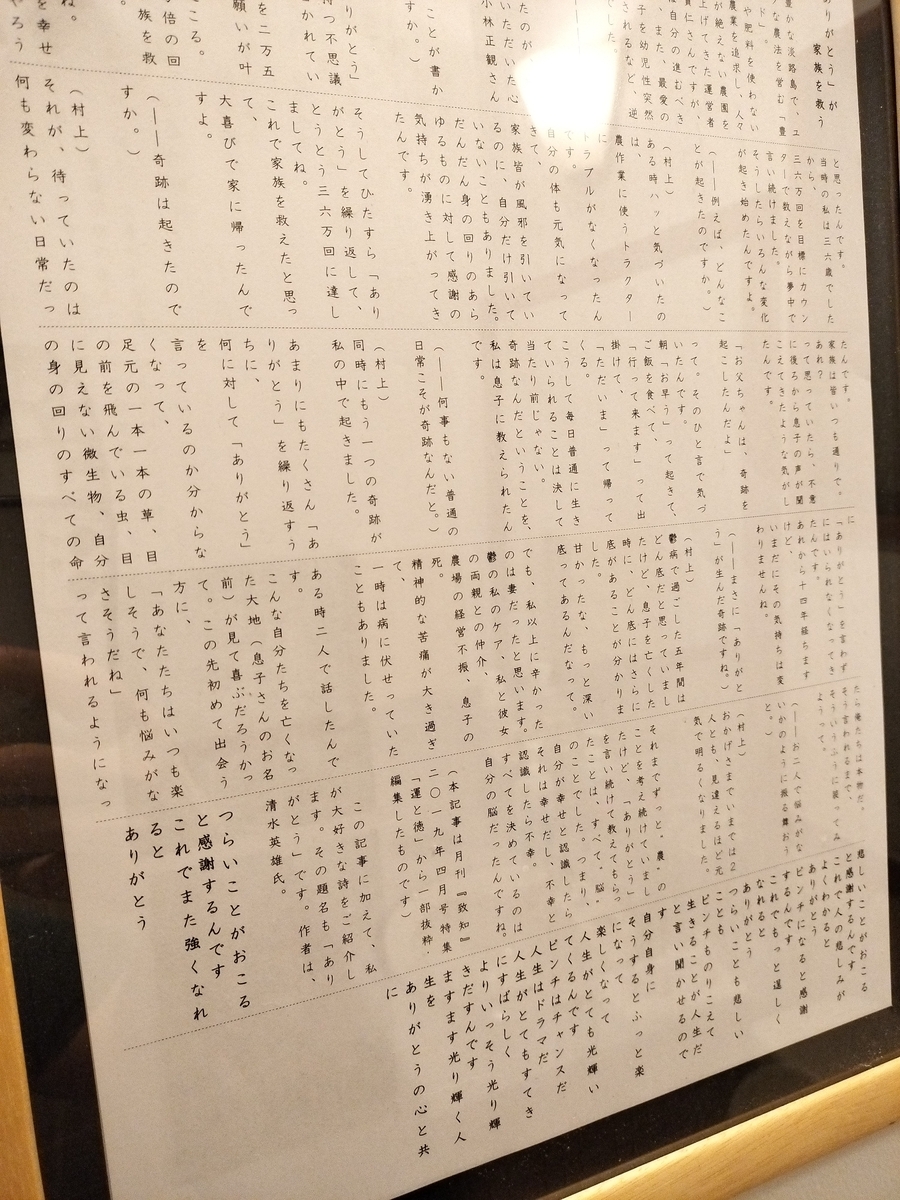 ありがとう」が
家族を救う
豊かな淡路島で、エ
な農法を営む「豊
や肥料を使わない
農業を追求し、人々
が絶えない農園を
上げてきた運営者
さんですが、
は自分の進むべき
、また、最愛の
子を幼児性突然
されるなど、逆
でした。
たのが
いただいた心
小林正観さん
ことが書か
すか。）
りがとう」
持つ不思議
かれてい
を二万五
願いが叶
こる。
倍の回
族を救
ね。
を幸せ
やろう
と思ったんです。
当時の私は三六歳でした
から、
三六万回を目標にカウン
ターで教えながら夢中で
言い続けました。
そうしたらいろんな変化
が起き始めたんですよ。
（――例えば、どんなこ
とが起きたのですか。）
（村上）
ある時ハッと気づいたの
は、
農作業に使うトラクター
に
トラブルがなくなったん
です。
自分の体も元気になって
きて、
家族皆が風邪を引いてい
るのに、自分だけ引いて
いないこともありました。
だんだん身の回りのあら
ゆるものに対して感謝の
気持ちが湧き上がってき
たんです。
そうしてひたすら「あり
がとう」を繰り返して、
とうとう三六万回に達し
ましてね。
これで家族を救えたと思っ
て、
大喜びで家に帰ったんで
すよ。
（――奇跡は起きたので
すか。）
（村上）
それが、待っていたのは
何も変わらない日常だっ
たんです。
家族は皆いつも通りで。
あれ？
って思っていたら、不意
に後ろから息子の声が聞
こえてきたような気がし
たんです。
「お父ちゃんは、奇跡を
起こしたんだよ」
って。そのひと言で気づ
いたんです。
朝「お早う」って起きて、
ご飯を食べて、
「行って来ます」って出
掛けて、
「ただいま」って帰って
くる。
こうして毎日普通に生き
ていられることは決して
当たり前じゃない。
奇跡なんだということを、
私は息子に教えられたん
です。
（――何事もない普通の
日常こそが奇跡なんだと。）
（村上）
同時にもう一つの奇跡が
私の中で起きました。
あまりにもたくさん「あ
りがとう」を繰り返すう
ちに、
何に対して「ありがとう」
を
言っているのか分からな
くなって、
足元の一本一本の草、目
の前を飛んでいる虫、目
に見えない微生物、自分
の身の回りのすべての命
に
「ありがとう」を言わず
にはいられなくなってき
たんです。
あれから十四年経ちます
けど、
いまだにその気持ちは変
わりませんね。
（――まさに「ありがと
う」が生んだ奇跡ですね。）
（村上）
鬱病で過ごした五年間は
どん底だと思っていまし
たけど、息子を亡くした
時に、どん底にはさらに
底があることが分かりま
した。
甘かったな、もっと深い
底ってあるんだなって。
でも、私以上に辛かった
のは妻だったと思います。
鬱の私のケア、私と彼女
の両親との仲介、
農場の経営不振、息子の
死。
精神的な苦痛が大き過ぎ
て、
一時は病に伏せっていた
こともありました。
ある時二人で話したんで
す。
こんな自分たちを亡くなっ
た大地（息子さんのお名
前）が見て喜ぶだろうかっ
て。この先初めて出会う
方に、
「あなたたちはいつも楽
しそうで、何も悩みがな
さそうだね」
って言われるようになっ
たら俺たちは本物だ。
そう言われるまで、
そういうふうに装ってみ
ようって。
（――お二人で悩みがな
いかのように振る舞おう
と。）
（村上）
おかげさまでいまでは２
人とも、見違えるほど元
気で明るくなりました。
それまでずっと“農”の
ことを考え続けていまし
たけど、「ありがとう」
を言い続けて教えてもらっ
たことは、すべて“脳”
のことでした。つまり、
自分が幸せと認識したら
それは幸せだし、不幸と
認識したら不幸。
すべてを決めているのは
自分の脳だったんですね。
（本記事は月刊『致知』
二〇一九年四月号特集
「運と徳」から一部抜粋・
編集したものです）
この記事に加えて、私
が大好きな詩をご紹介し
ます。その題名も「あり
がとう」です。作者は、
清水英雄氏。
つらいことがおこる
と感謝するんです
これでまた強くなれ
ると
ありがとう
悲しいことがおこる
と感謝するんです
これで人の悲しみが
よくわかると
ありがとう
ピンチになると感謝
するんです
これでもっと逞しく
なれると
ありがとう
つらいことも悲しい
ことも
ピンチものりこえて
生きることが人生だ
と言い聞かせるので
す
自分自身に
そうするとふっと楽
になって
楽しくなって
人生がとても光輝い
てくるんです
ピンチはチャンスだ
人生はドラマだ
人生がとてもすてき
にすばらしく
よりいっそう光り輝
きだすんです
ますます光り輝く人
生を
ありがとうの心と共
に